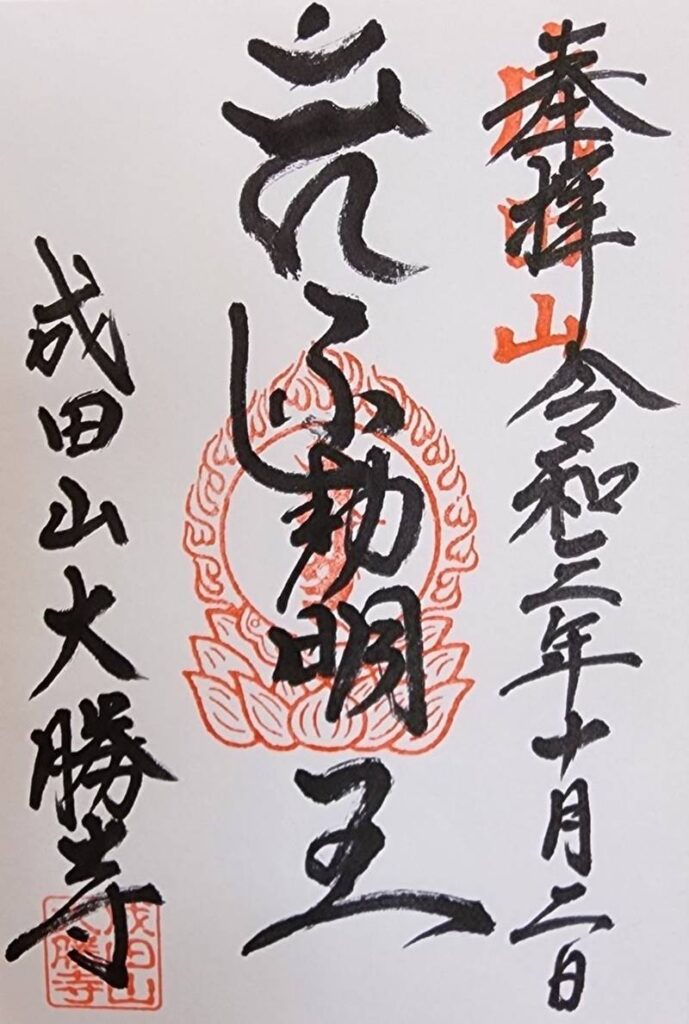 奉拝 令和三年十月二日
成田山
不動明王
成田山大勝寺
成田山
大勝寺